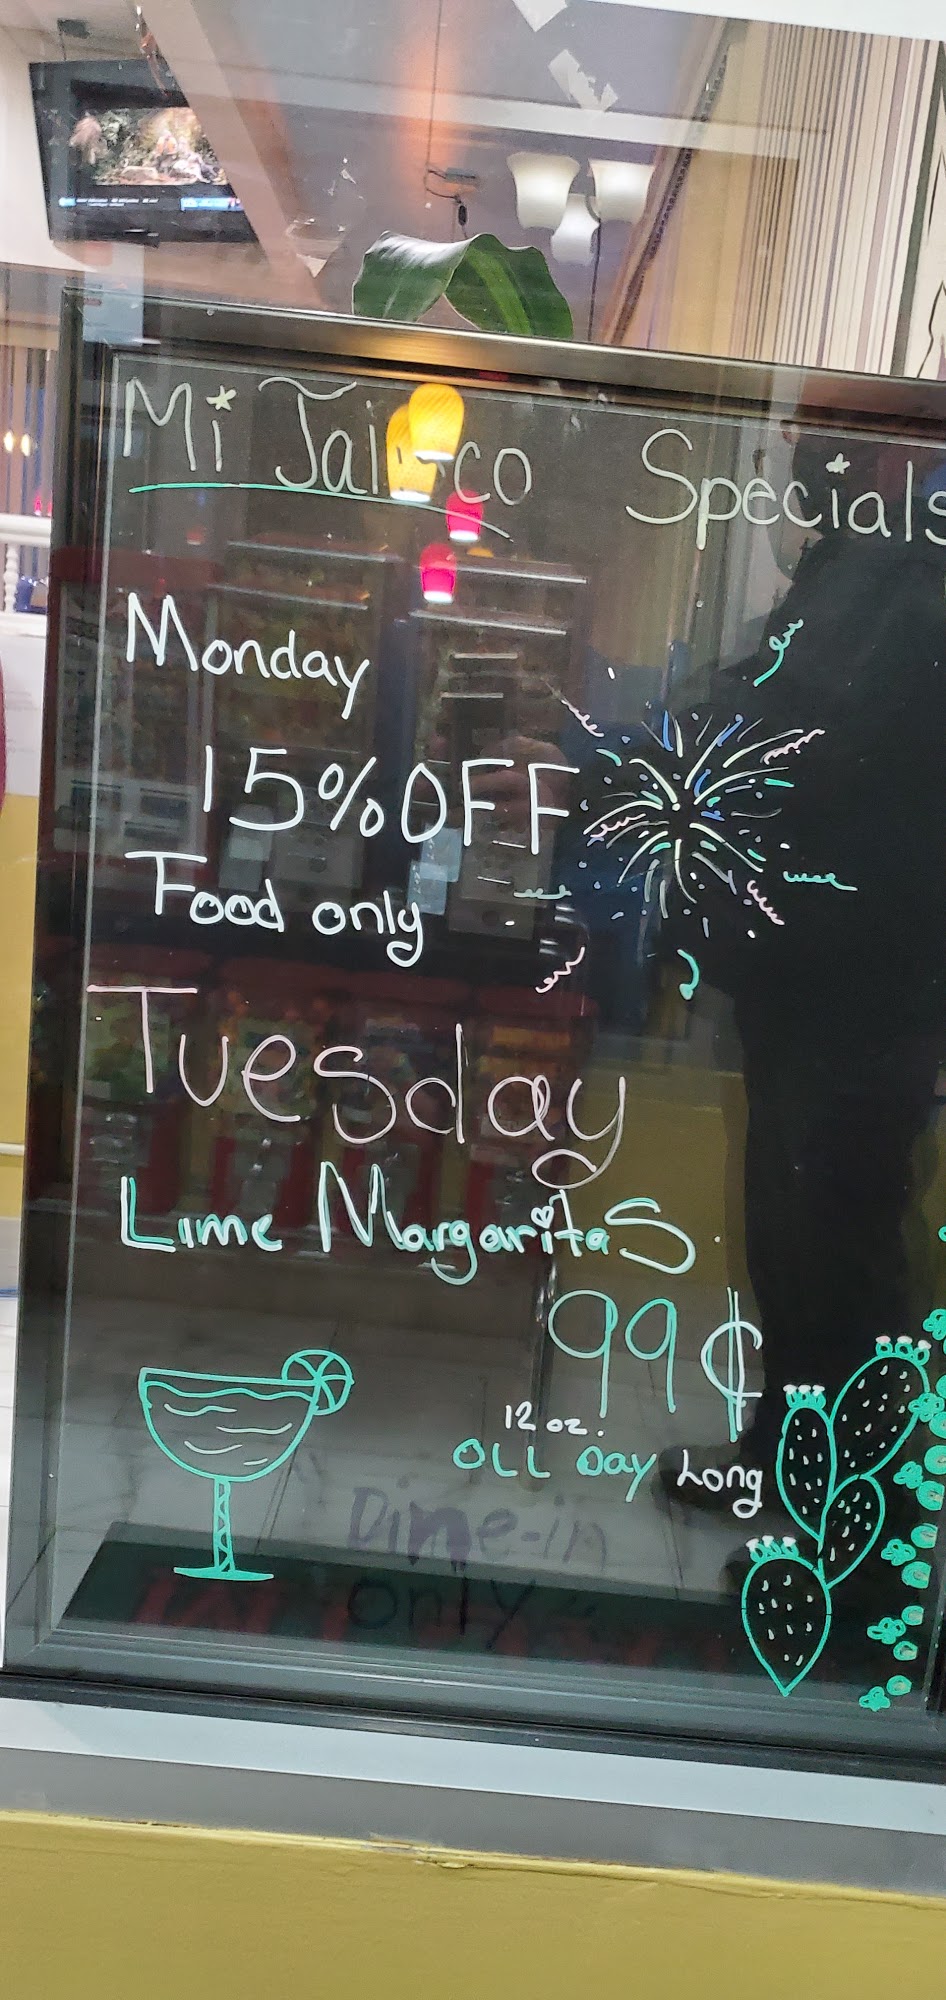 Mi Jalisco Specials
Monday
15% OFF
Food only
Tuesday
Lime Margaritas
99¢
12 oz.
ALL Day Long
Dine-in
only